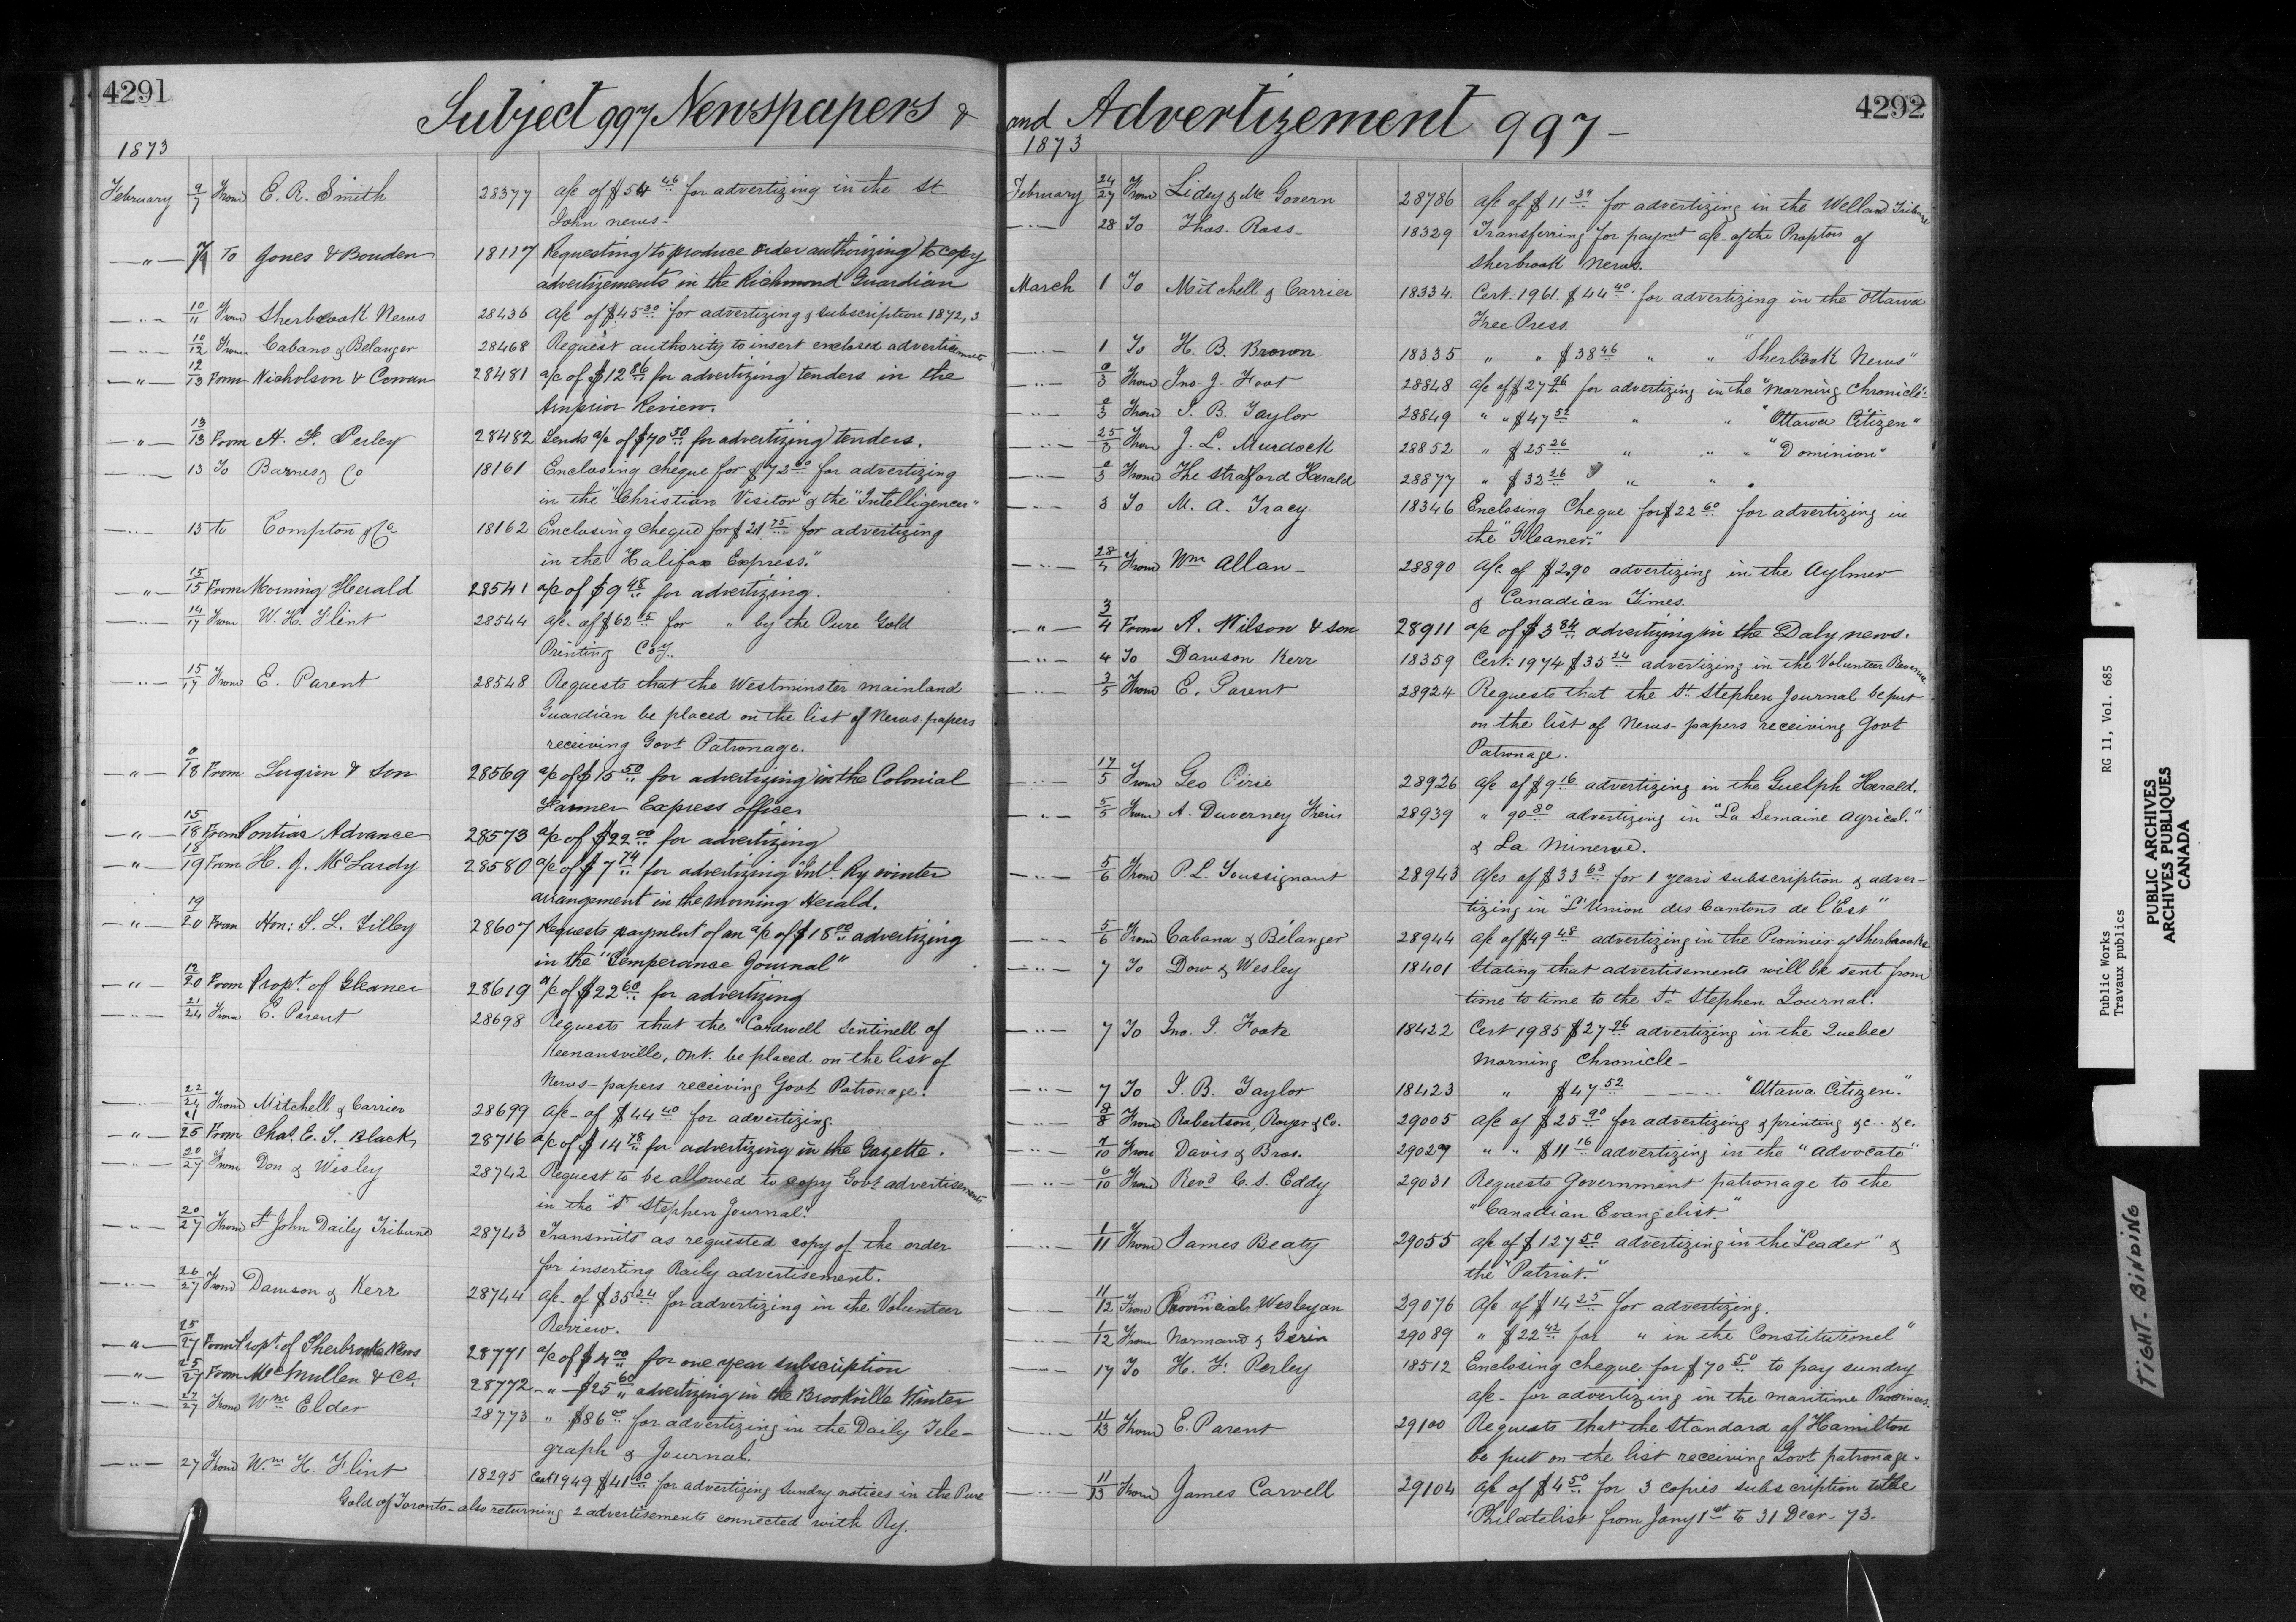 4291
Subject 997 Newspapers &
1873
February 9/7 From E. R. Smith 28377 a/c of $54 46 for advertizing in the St
John news-
—"— 7 To Jones & Bouden 18117 Requesting to produce order authorizing to copy
advertizements in the Richmond Guardian
—"— 10/11 From Sherbrook News 28436 a/c of $45 30 for advertizing & subscription 1872,3
—"— 10/12 From Cabano & Belanger 28468 Request authority to insert enclosed advertisements
—"— 12/13 From Nicholson & Cowan 28481 a/c of $12 86 for advertizing tenders in the
Arnprior Review.
—"— 13/13 From H. F. Perley 28482 Sends a/c of $70 50 for advertizing tenders.
—"— 13 To Barnes & Co 18161 Enclosing cheque for $72 00 for advertizing
in the "Christian Visitor" & the "Intelligencer"
—"— 15 to Compton & Co 18162 Enclosing cheque for $21 25 for advertizing
in the "Halifax Express."
—"— 15/15 From Morning Herald 28541 a/c of $9 48 for advertizing.
—"— 14/17 From W. H. Flint 28544 a/c of $62 15 for " by the Pure Gold
Printing Coy.
—"— 15/17 From E. Parent 28548 Requests that the Westminster mainland
Guardian be placed on the list of News papers
receiving Govt Patronage.
—"— 0/18 From Lugrin & Son 28569 a/c of $15 50 for advertizing in the Colonial
Farmer Express office
—"— 15/18 From Pontiac Advance 28573 a/c of $22 00 for advertizing
—"— 18/19 From H. J. McLardy 28580 a/c of $7 74 for advertizing Intl. Ry winter
arrangement in the morning Herald.
—"— 19/20 From Hon: S. L. Tilley 28607 Requests payment of an a/c of $18 00 advertizing
in the "Temperance Journal"
—"— 12/20 From Propt. of Gleaner 28619 a/c of $22 60 for advertizing
—"— 21/24 From E. Parent 28698 Requests that the "Cardwell Sentinell of
Keenansville, Ont. be placed on the list of
News-papers receiving Govt Patronage.
—"— 22/24 From Mitchell & Carrier 28699 a/c of $44 40 for advertizing
—"— 21/25 From Chas. E. S. Black 28716 a/c of $14 78 for advertizing in the Gazette.
—"— 20/27 From Don & Wesley 28742 Request to be allowed to copy Govt advertisements
in the "St Stephen Journal."
—"— 20/27 From St John Daily Tribune 28743 Transmits as requested copy of the order
for inserting Raily advertisement.
—"— 26/27 From Dawson & Kerr 28744 a/c of $35 24 for advertizing in the Volunteer
Review.
—"— 25/27 From Propt. of Sherbrooke News 28771 a/c of $4 00 for one year subscription
—"— 25/27 From McMullen & Co. 28772 —"— $25 60 advertizing in the Brookville Winter
—"— 27/27 From Wm Elder 28773 " $86 00 for advertizing in the Daily Tele-
graph & Journal.
—"— 27 From Wm. H. Flint 18295 Cert 1949 $41 80 for advertizing sundry notices in the Pure
Gold of Toronto - also returning 2 advertisements connected with Ry.
and Advertizement 997 -
4292
1873
February 24/27 From Lidey & Mc Govern 28786 a/c of $11 39 for advertizing in the Welland Tribune
—"— 28 To Thos. Ross 18329 Transferring for paymt a/c of the Proptors of
Sherbrook News.
March 1 To Mitchell & Carrier 18334. Cert. 1961. $44 40 for advertizing in the Ottawa
Free Press.
—"— 1 To H. B. Brown 18335 " " $38 46 " " "Sherbrook News"
—"— 0/3 From Jno. J. Foot 28848 a/c of $27 96 for advertizing in the "Morning Chronicle"
—"— 0/3 From I. B. Taylor 28849 " " $47 52 " " "Ottawa Citizen"
—"— 25/3 From J. L. Murdock 28852 " $25 26 " " " "Dominion"
—"— 0/3 From The Straford Herald 28877 " $32 26 " "
—"— 3 To M. A. Tracy 18346 Enclosing Cheque for $22 60 for advertizing in
the "Gleaner."
—"— 28/4 From Wm Allan - 28890 a/c of $2.90 advertizing in the Aylmer
& Canadian Times.
—"— 3/4 From A. Wilson & son 28911 a/c of $3 84 advertizing in the Daly news.
—"— 4 To Dawson Kerr 18359 Cert: 1974 $35 24 advertizing in the Volunteer Review
—"— 3/5 From E. Parent 28924 Requests that the St Stephen Journal be put
on the list of News-papers receiving Govt
Patronage.
—"— 17/5 From Geo Pirie 28926 a/c of $9 16 advertizing in the Guelph Herald.
—"— 5/5 From A. Duverney Freres 28939 " 90 80 advertizing in "La Semaine agrical."
& La Minerve.
—"— 5/6 From P. L. Toussignant 28943 a/cs of $33 68 for 1 years subscription & adver-
tizing in "L'Union des Cantons de l'Est"
—"— 5/6 From Cabana & Bélanger 28944 a/c of $49 48 advertizing in the Pionnier of Sherbrooke
—"— 7 To Dow & Wesley 18401 Stating that advertisements will be sent from
time to time to the St Stephen Journal.
—"— 7 To Jno. J. Foote 18422 Cert 1985 $27 96 advertizing in the Quebec
Morning Chronicle -
—"— 7 To I. B. Taylor 18423 " $47 52 ---- "Ottawa Citizen."
—"— 8/8 From Robertson, Royer & Co. 29005 a/c of $25 90 for advertizing & printing &c. &c.
—"— 7/10 From Davis & Bros. 29029 " " $11 16 advertizing in the "Advocate"
—"— 6/10 From Revd C. S. Eddy 29031 Requests Government patronage to the
"Canadian Evangelist."
—"— 1/11 From James Beaty 29055 a/c of $127 50 advertizing in the "Leader" &
the "Patriot."
—"— 11/12 From Provincial Wesleyan 29076 a/c of $14 25 for advertizing.
—"— 1/12 From Normand & Gerin 29089 " $22 42 for " in the Constitutionel"
—"— 17 To H. F. Perley 18512 Enclosing cheque for $70 50 to pay sundry
a/c - for advertizing in the maritime Provinces.
—"— 11/13 From E. Parent 29100 Requests that the Standard of Hamilton
be put on the list receiving Govt patronage.
—"— 11/13 From James Carvell 29104 a/c of $4 50 for 3 copies subscription to the
"Philatelist from Jany 1st to 31 Decr - 73.
Public Works
Travaux publics
RG 11, Vol. 685
PUBLIC ARCHIVES
ARCHIVES PUBLIQUES
CANADA
TIGHT-BINDING